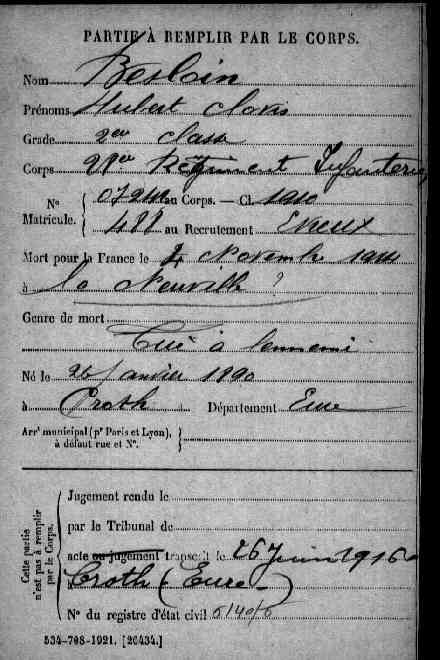 PARTIE À REMPLIR PAR LE CORPS.
Nom Besloin
Prénoms Hubert Clovis
Grade 2eme classe
Corps 28eme Régiment Infanterie
N° Matricule. { au Corps. — Cl. 1910
488 au Recrutement Evreux
Mort pour la France le 4 Novembre 1914
à la Neuville ?
Genre de mort
Tué à l'ennemi
Né le 26 Janvier 1890
à Croth Département Eure
Arrt municipal (pr Paris et Lyon),
à défaut rue et N°.
Cette partie n'est pas à remplir par le Corps.
Jugement rendu le
par le Tribunal de
acte ou jugement transcrit le 26 Juin 1916
à Croth (Eure)
N° du registre d'état civil
534-708-1921. [26434.]